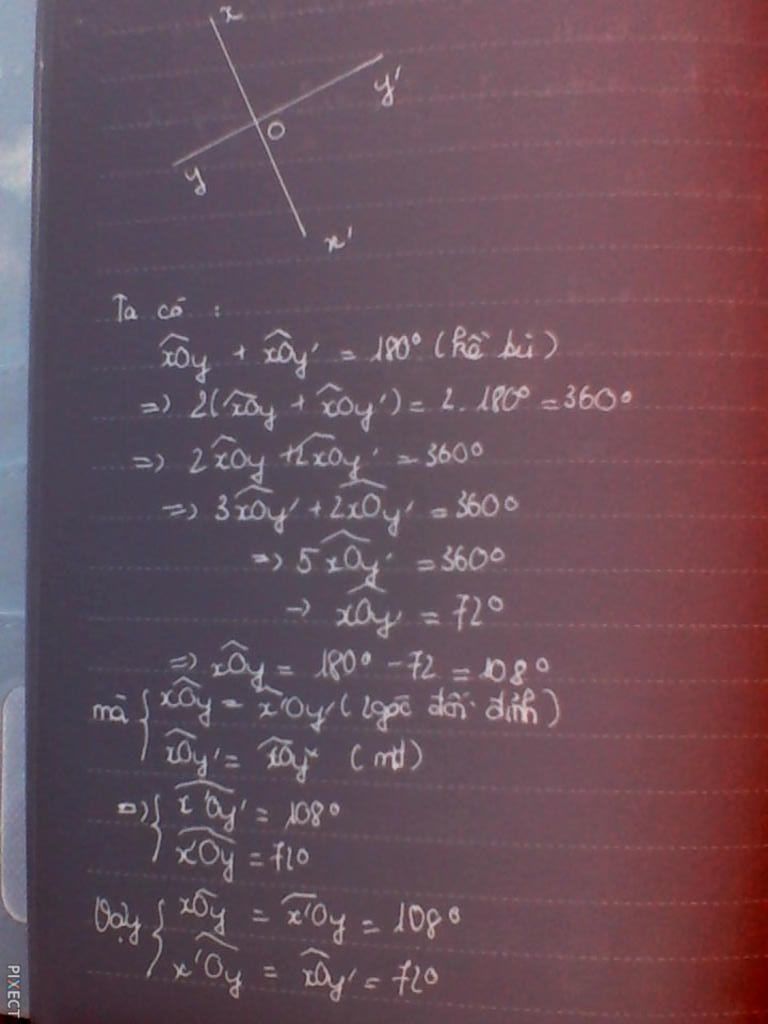 x
y'
O
y
x'
Ta có :
x̂Oy + x̂Oy' = 180° (kề bù)
=> 2(x̂Oy + x̂Oy') = 2. 180° = 360°
=> 2x̂Oy + 2x̂Oy' = 360°
=> 3x̂Oy' + 2x̂Oy' = 360°
=> 5x̂Oy' = 360°
-> x̂Oy' = 72°
=> x̂Oy = 180° - 72 = 108°
mà { x̂Oy = x̂'Oy' (2 góc đối đỉnh)
x̂Oy' =
=> { x̂'Oy' = 108°
x̂'Oy = 72°
Vậy { x̂Oy = x̂'Oy = 108°
x̂'Oy = x̂Oy' = 72°
PIXECT